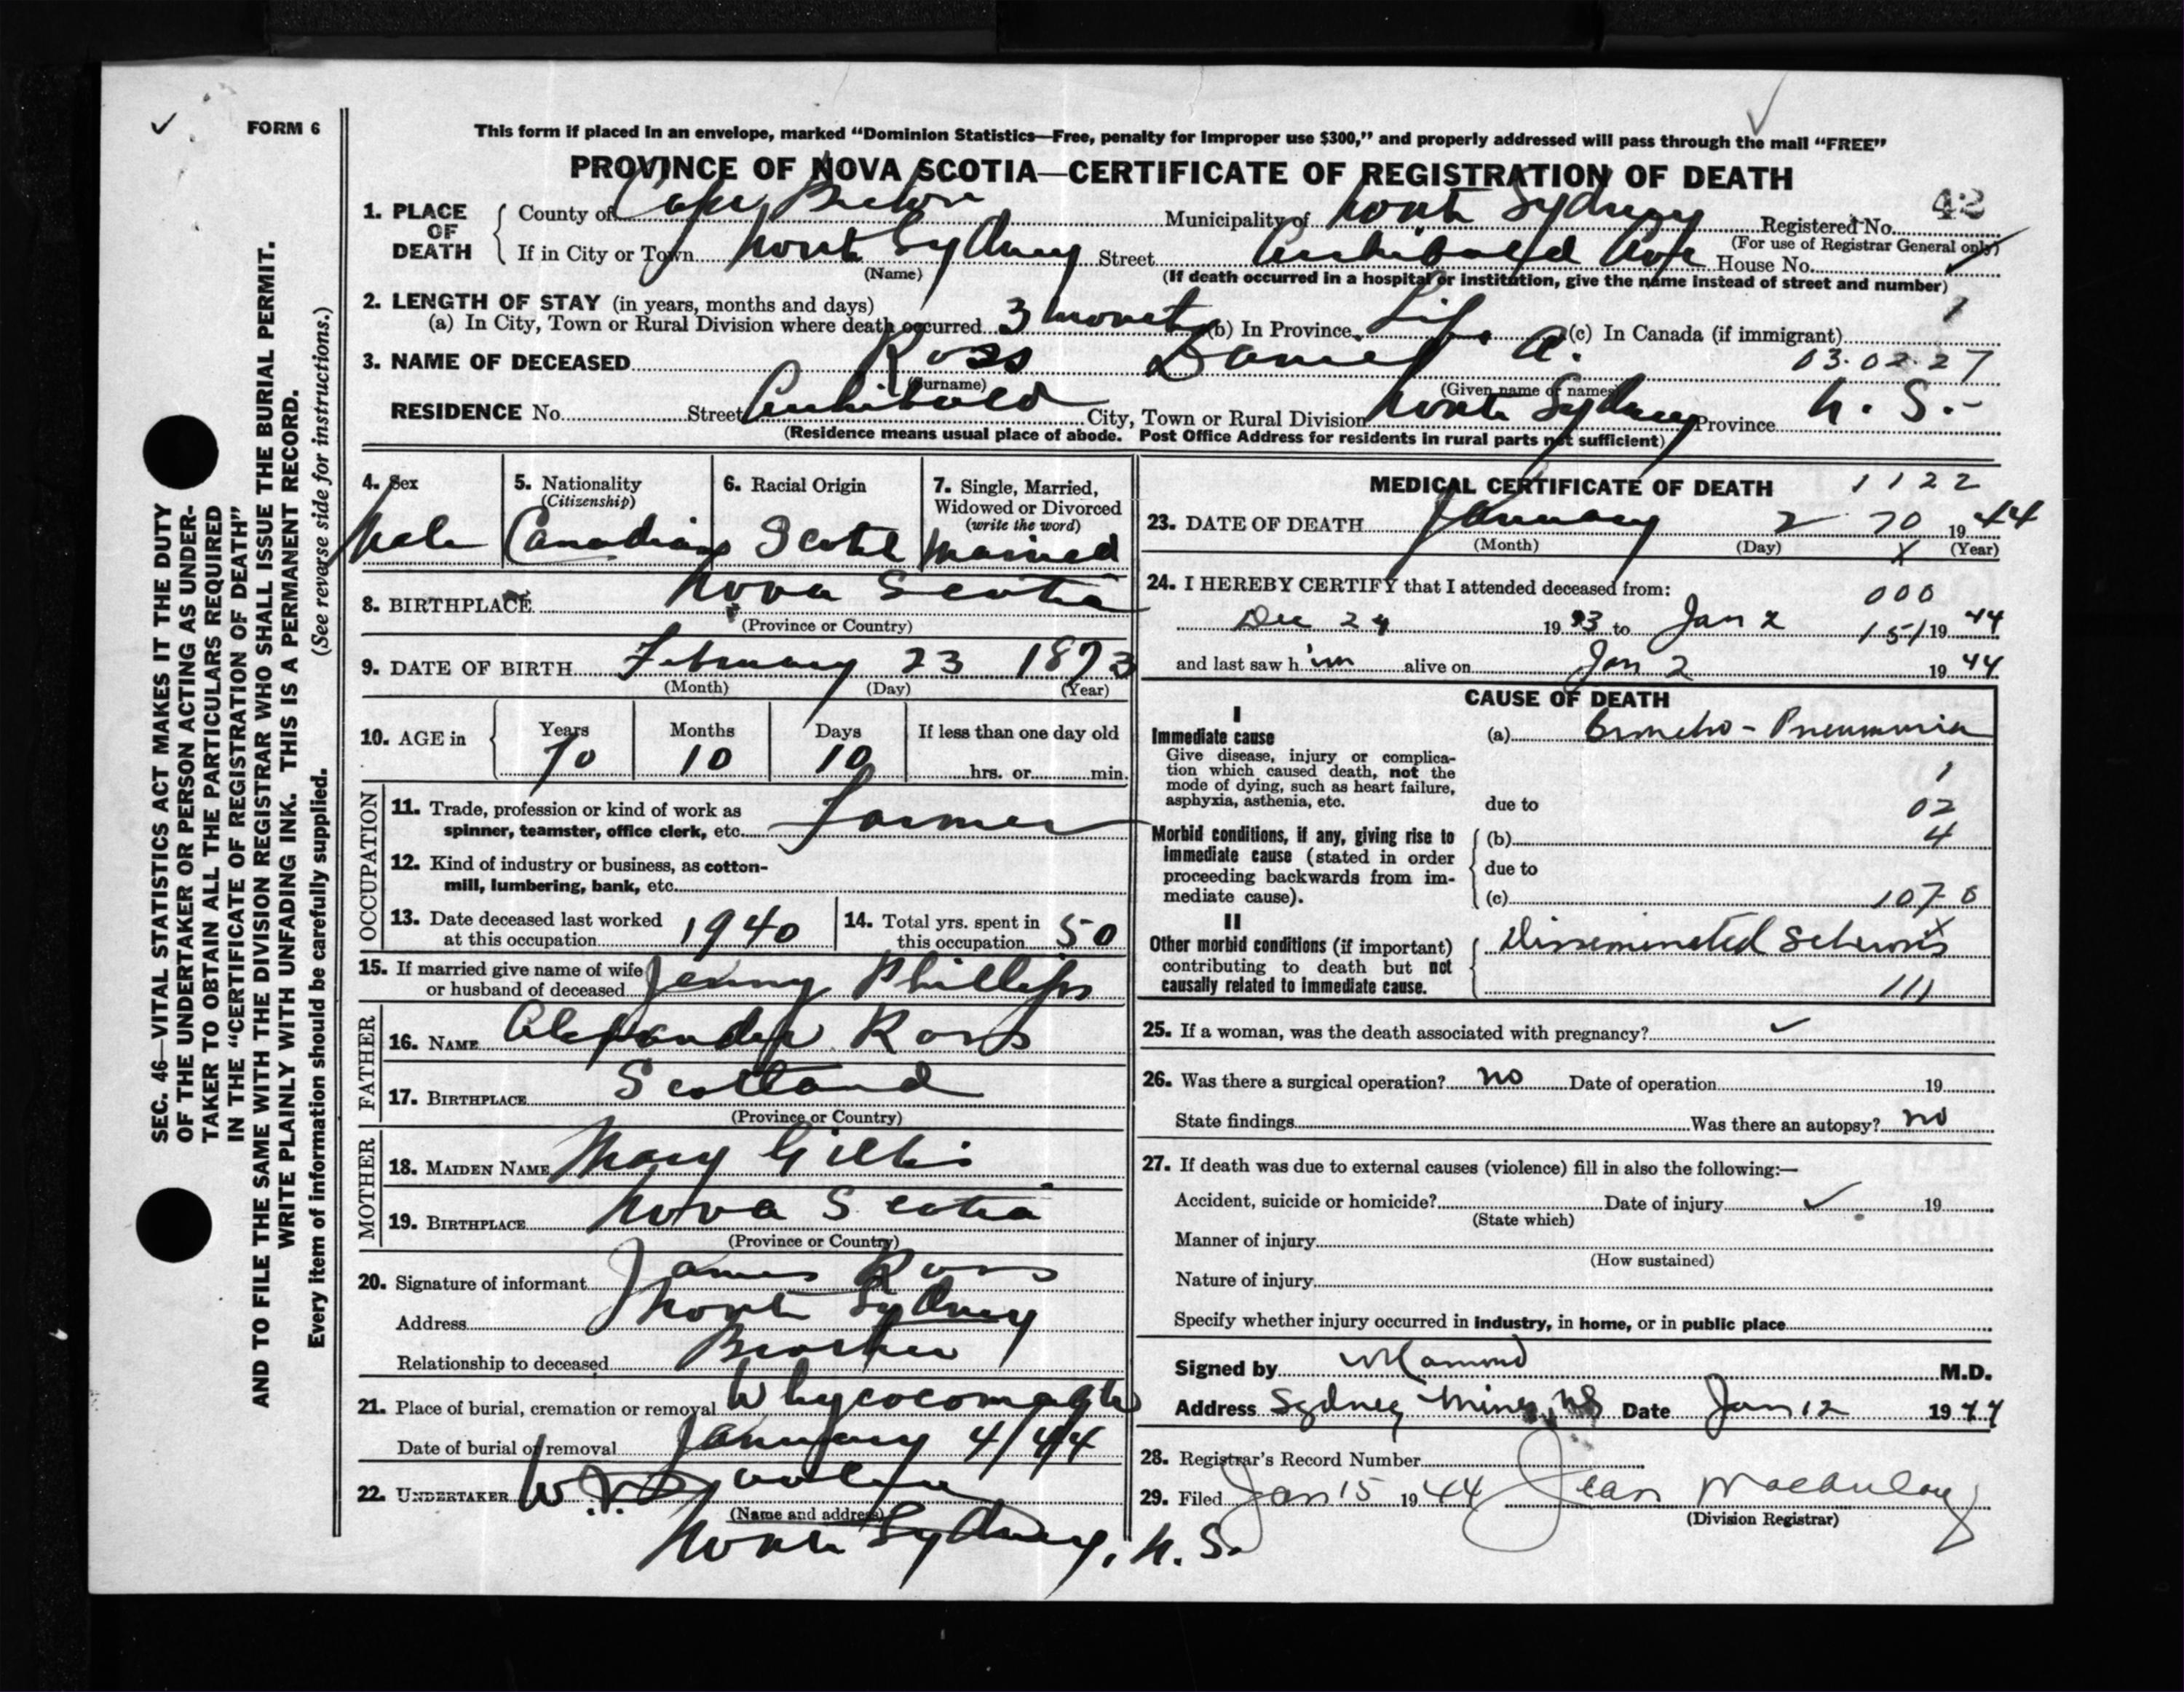 ✓ FORM 6
This form if placed in an envelope, marked “Dominion Statistics—Free, penalty for improper use $300,” and properly addressed will pass through the mail “FREE”
PROVINCE OF NOVA SCOTIA—CERTIFICATE OF REGISTRATION OF DEATH
SEC. 46—VITAL STATISTICS ACT MAKES IT THE DUTY
OF THE UNDERTAKER OR PERSON ACTING AS UNDER-
TAKER TO OBTAIN ALL THE PARTICULARS REQUIRED
IN THE “CERTIFICATE OF REGISTRATION OF DEATH”
AND TO FILE THE SAME WITH THE DIVISION REGISTRAR WHO SHALL ISSUE THE BURIAL PERMIT.
WRITE PLAINLY WITH UNFADING INK. THIS IS A PERMANENT RECORD.
Every item of information should be carefully supplied. (See reverse side for instructions.)
1. PLACE OF DEATH
County of Cape Breton Municipality of North Sydney Registered No. 42
(For use of Registrar General only)
If in City or Town North Sydney Street Archibald Ave House No.
(Name)
(If death occurred in a hospital or institution, give the name instead of street and number)
2. LENGTH OF STAY (in years, months and days)
(a) In City, Town or Rural Division where death occurred 3 months (b) In Province Life (c) In Canada (if immigrant) 1
3. NAME OF DECEASED Ross Daniel A. 03.02.27
(Surname) (Given name or names)
RESIDENCE No. Street Archibald City, Town or Rural Division North Sydney Province N. S.-
(Residence means usual place of abode. Post Office Address for residents in rural parts not sufficient)
4. Sex
Male
5. Nationality
(Citizenship)
Canadian
6. Racial Origin
Scotch
7. Single, Married,
Widowed or Divorced
(write the word)
Married
8. BIRTHPLACE Nova Scotia
(Province or Country)
9. DATE OF BIRTH February 23 1873
(Month) (Day) (Year)
10. AGE in
Years Months Days If less than one day old
70 10 10 hrs. or min.
OCCUPATION
11. Trade, profession or kind of work as
spinner, teamster, office clerk, etc. Farmer
12. Kind of industry or business, as cotton-
mill, lumbering, bank, etc.
13. Date deceased last worked
at this occupation 1940
14. Total yrs. spent in
this occupation 50
15. If married give name of wife
or husband of deceased Jenny Phillips
FATHER
16. NAME Alexander Ross
17. BIRTHPLACE Scotland
(Province or Country)
MOTHER
18. MAIDEN NAME Mary Gillis
19. BIRTHPLACE Nova Scotia
(Province or Country)
20. Signature of informant James Ross
Address North Sydney
Relationship to deceased Brother
21. Place of burial, cremation or removal Whycocomagh
Date of burial or removal January 4/44
22. UNDERTAKER
(Name and address)
North Sydney, N. S.
MEDICAL CERTIFICATE OF DEATH 1122
23. DATE OF DEATH January 2 70 1944
(Month) (Day) x (Year)
24. I HEREBY CERTIFY that I attended deceased from:
000
Dec 24 1943 to Jan 2 151 1944
and last saw him alive on Jan 2 1944
CAUSE OF DEATH
I
Immediate cause
Give disease, injury or complica-
tion which caused death, not the
mode of dying, such as heart failure,
asphyxia, asthenia, etc.
(a) Broncho-Pneumonia
1
due to 02
Morbid conditions, if any, giving rise to
immediate cause (stated in order
proceeding backwards from im-
mediate cause).
(b) 4
due to
(c) 107 0
II
Other morbid conditions (if important)
contributing to death but not
causally related to immediate cause.
Disseminated Sclerosis
x
111
25. If a woman, was the death associated with pregnancy? ✓
26. Was there a surgical operation? no Date of operation 19
State findings Was there an autopsy? no
27. If death was due to external causes (violence) fill in also the following:—
Accident, suicide or homicide? Date of injury ✓ 19
(State which)
Manner of injury
(How sustained)
Nature of injury
Specify whether injury occurred in industry, in home, or in public place
Signed by M.D.
Address Sydney Mines, NS Date Jan 12 1944
28. Registrar's Record Number
29. Filed Jan 15 1944 Jean Macaulay
(Division Registrar)